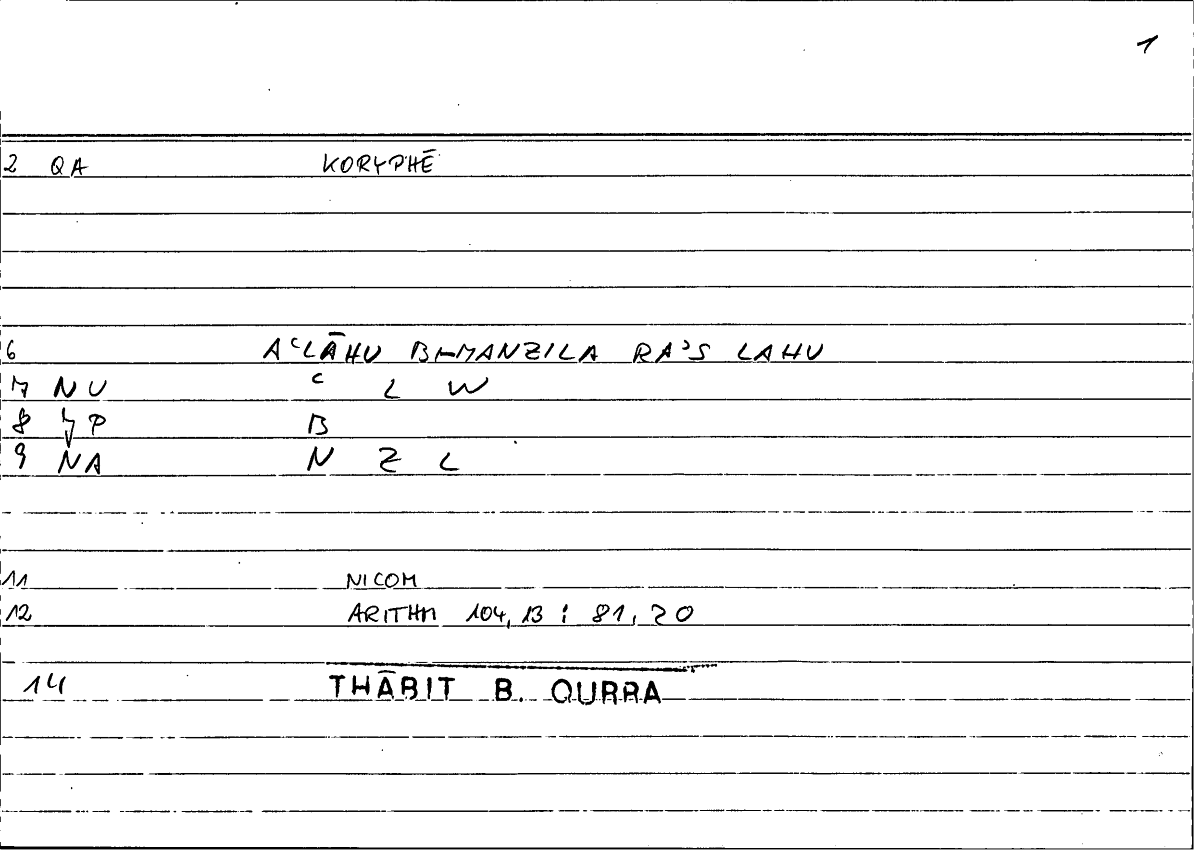 1
2 QA KORYPHĒ
6 AʿLĀHU BI-MANZILA RAʾS LAHU
7 NU ʿ L W
8 P B
9 NA N Z L
11 NICOM
12 ARITHM 104,13 : 81,20
14 THĀBIT B. QURRA